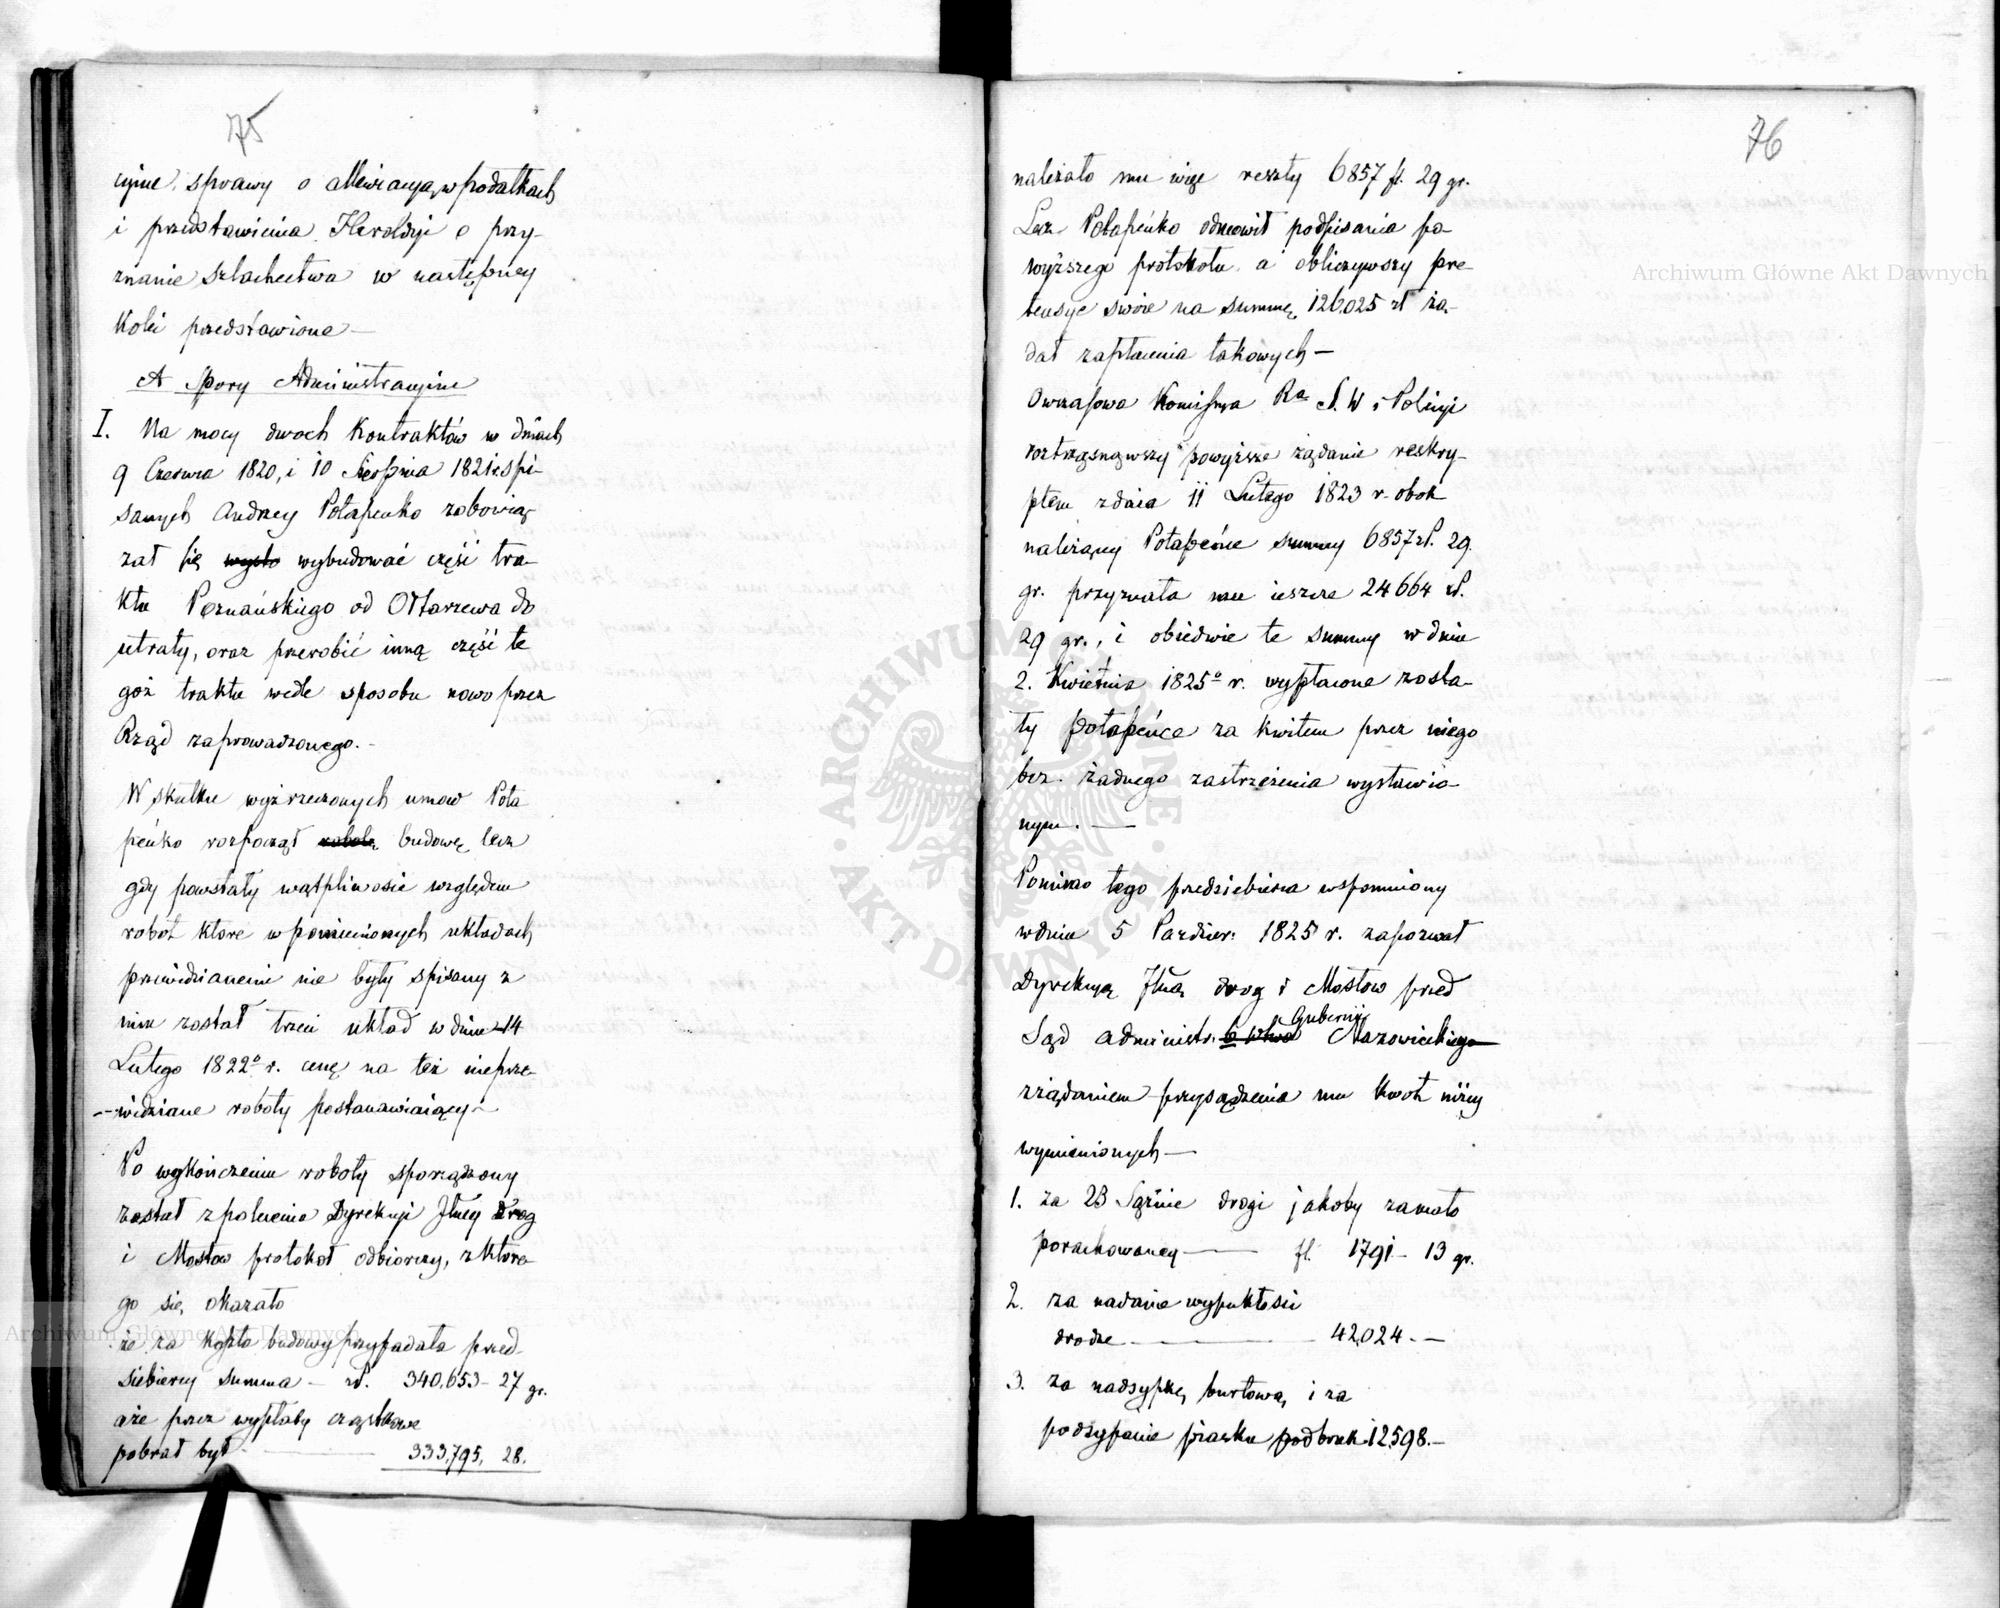 75
cyjne, sprawy o allewiacyą w podatkach
i przedstawienia Heroldyi o przy-
znanie szlachectwa w następney
kolei przedstawione —
A Spory Administracyjne
I. Na mocy dwóch kontraktów w dniach
9 Czerwca 1820, i 10 Sierpnia 1821 r. spi-
sanych Andrzey Potapenko zobowią-
zał się wybudować część tra-
ktu Poznańskiego od Ołtarzewa do
utraty, oraz przerobić inną część te
goż traktu wedle sposobu nowo przez
Rząd zaprowadzonego. -
W skutku wyżrzeczonych umow Pota
peńko rozpoczął budowę lecz
gdy powstały wątpliwosie względem
robót ktore w pomienionych układach
przewidzianemi nie były spisany z
nim został trzeci układ w dniu 14
Lutego 1822º r. cenę na też nieprze-
widziane roboty postanawiaiący -
Po wykończeniu roboty sporządzony
został z polecenia Dyrekcyi Jlney drog
i Mostow protokoł odbiorczy, z ktore-
go się okazało
że za koszta budowy przypadała przed-
siebiercy summa — zł. 340,653 - 27 gr.
a że przez wypłaty cząstkowe
pobrał był — 333,795, 28.
76
należało mu więc reszty 6857 fl. 29 gr.
Lecz Potapeńko odmowił podpisania po-
wyższego protokołu a obliczywszy pre-
tensye swoie na summę 126,025 zł żą-
dał zapłacenia takowych —
Owczasowa Komissya Ra S. W i Policyi
roztrząsnąwszy powyższe żądanie reskry-
ptem z dnia 11 Lutego 1823 r. obok
należącey Potapeńce summy 6857 zł. 29
gr. przyznała mu ieszcze 24664 zł.
29 gr., i obiedwie te summy w dniu
2. Kwietnia 1825º r. wypłacone zosta-
ły Potapeńce za kwitem przez niego
bez żadnego zastrzeżenia wystawio-
nym. —
Pomimo tego przedsiebierca wspomniony
w dniu 5 Pazdzier: 1825 r. zapozwał
Dyrekcyą Jlną drog i Mostow przed
Gubernii
Sąd administr. b. wtwa Mazowieckiego
z żądaniem przysądzenia mu kwot niżey
wymienionych —
1. za 23 Sążnie drogi jakoby zamało
porachowaney — fl. 1791 - 13 gr.
2. za nadanie wypukłości
drodze — 42,024. —
3. za nadsypkę burtową, i za
podsypanie piasku pod bruk 12,598. —
Archiwum Główne Akt Dawnych
Archiwum Główne Akt Dawnych
ARCHIWUM GŁÓWNE AKT DAWNYCH